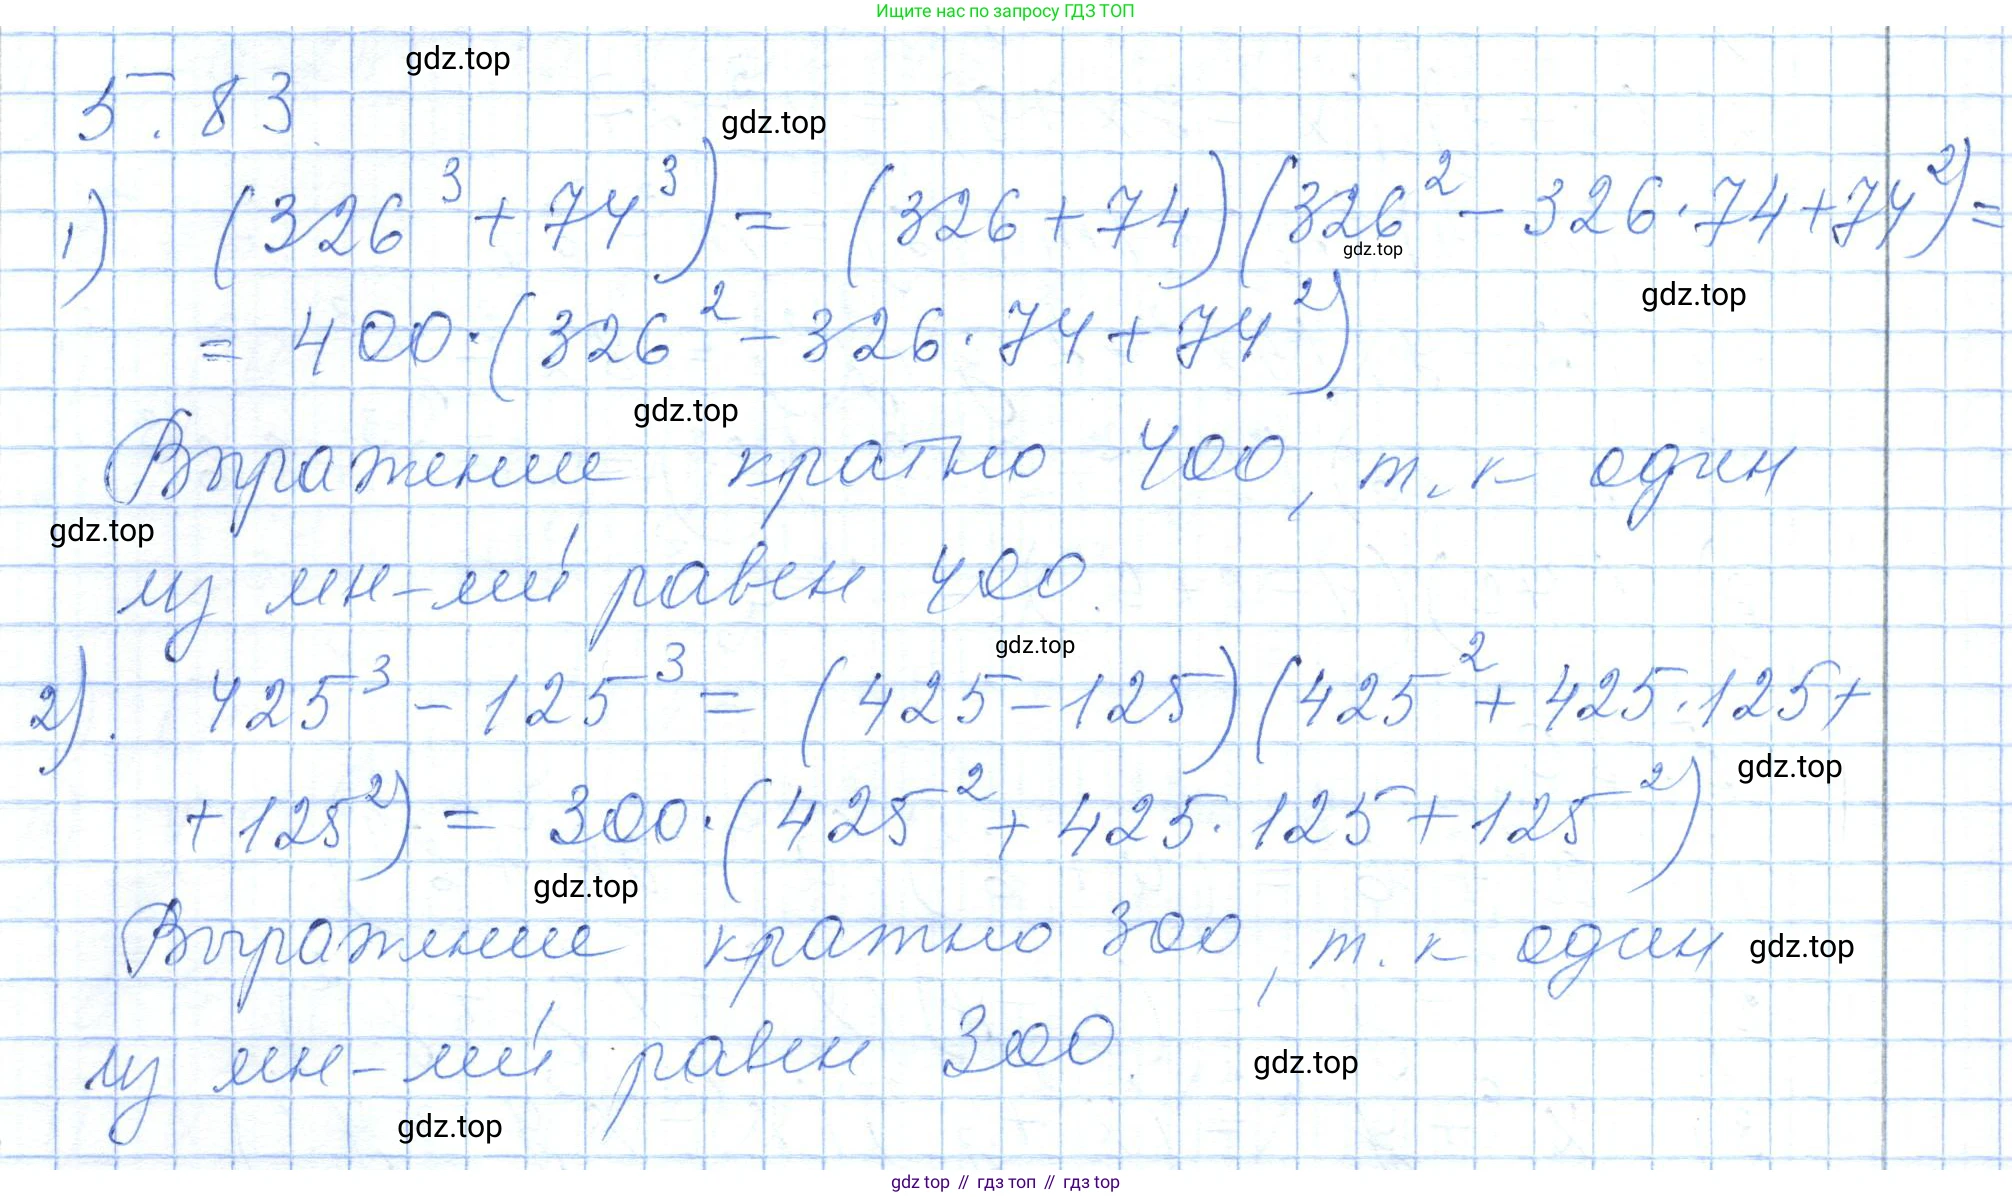 Ищите нас по запросу ГДЗ ТОП
gdz.top
5.83
gdz.top
1) (326³ + 74³) = (326 + 74)(326² - 326 · 74 + 74²) =
gdz.top
gdz.top
= 400 · (326² - 326 · 74 + 74²).
gdz.top
Выражение кратно 400, т.к один
gdz.top
из мн-лей равен 400.
gdz.top
2). 425³ - 125³ = (425 - 125)(425² + 425 · 125 +
gdz.top
+ 125²) = 300 · (425² + 425 · 125 + 125²)
gdz.top
Выражение кратно 300, т.к один
gdz.top
из мн-лей равен 300.
gdz.top
gdz.top
gdz top // гдз топ // гдз top